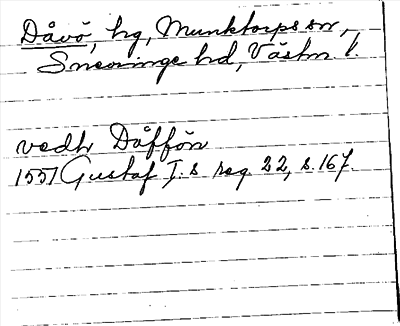 Dåvö, hg, Munktorps sn,
Snevringe hd, Västm. l.
vedh Dåffön
1551 Gustaf I:s reg 22, s. 167.